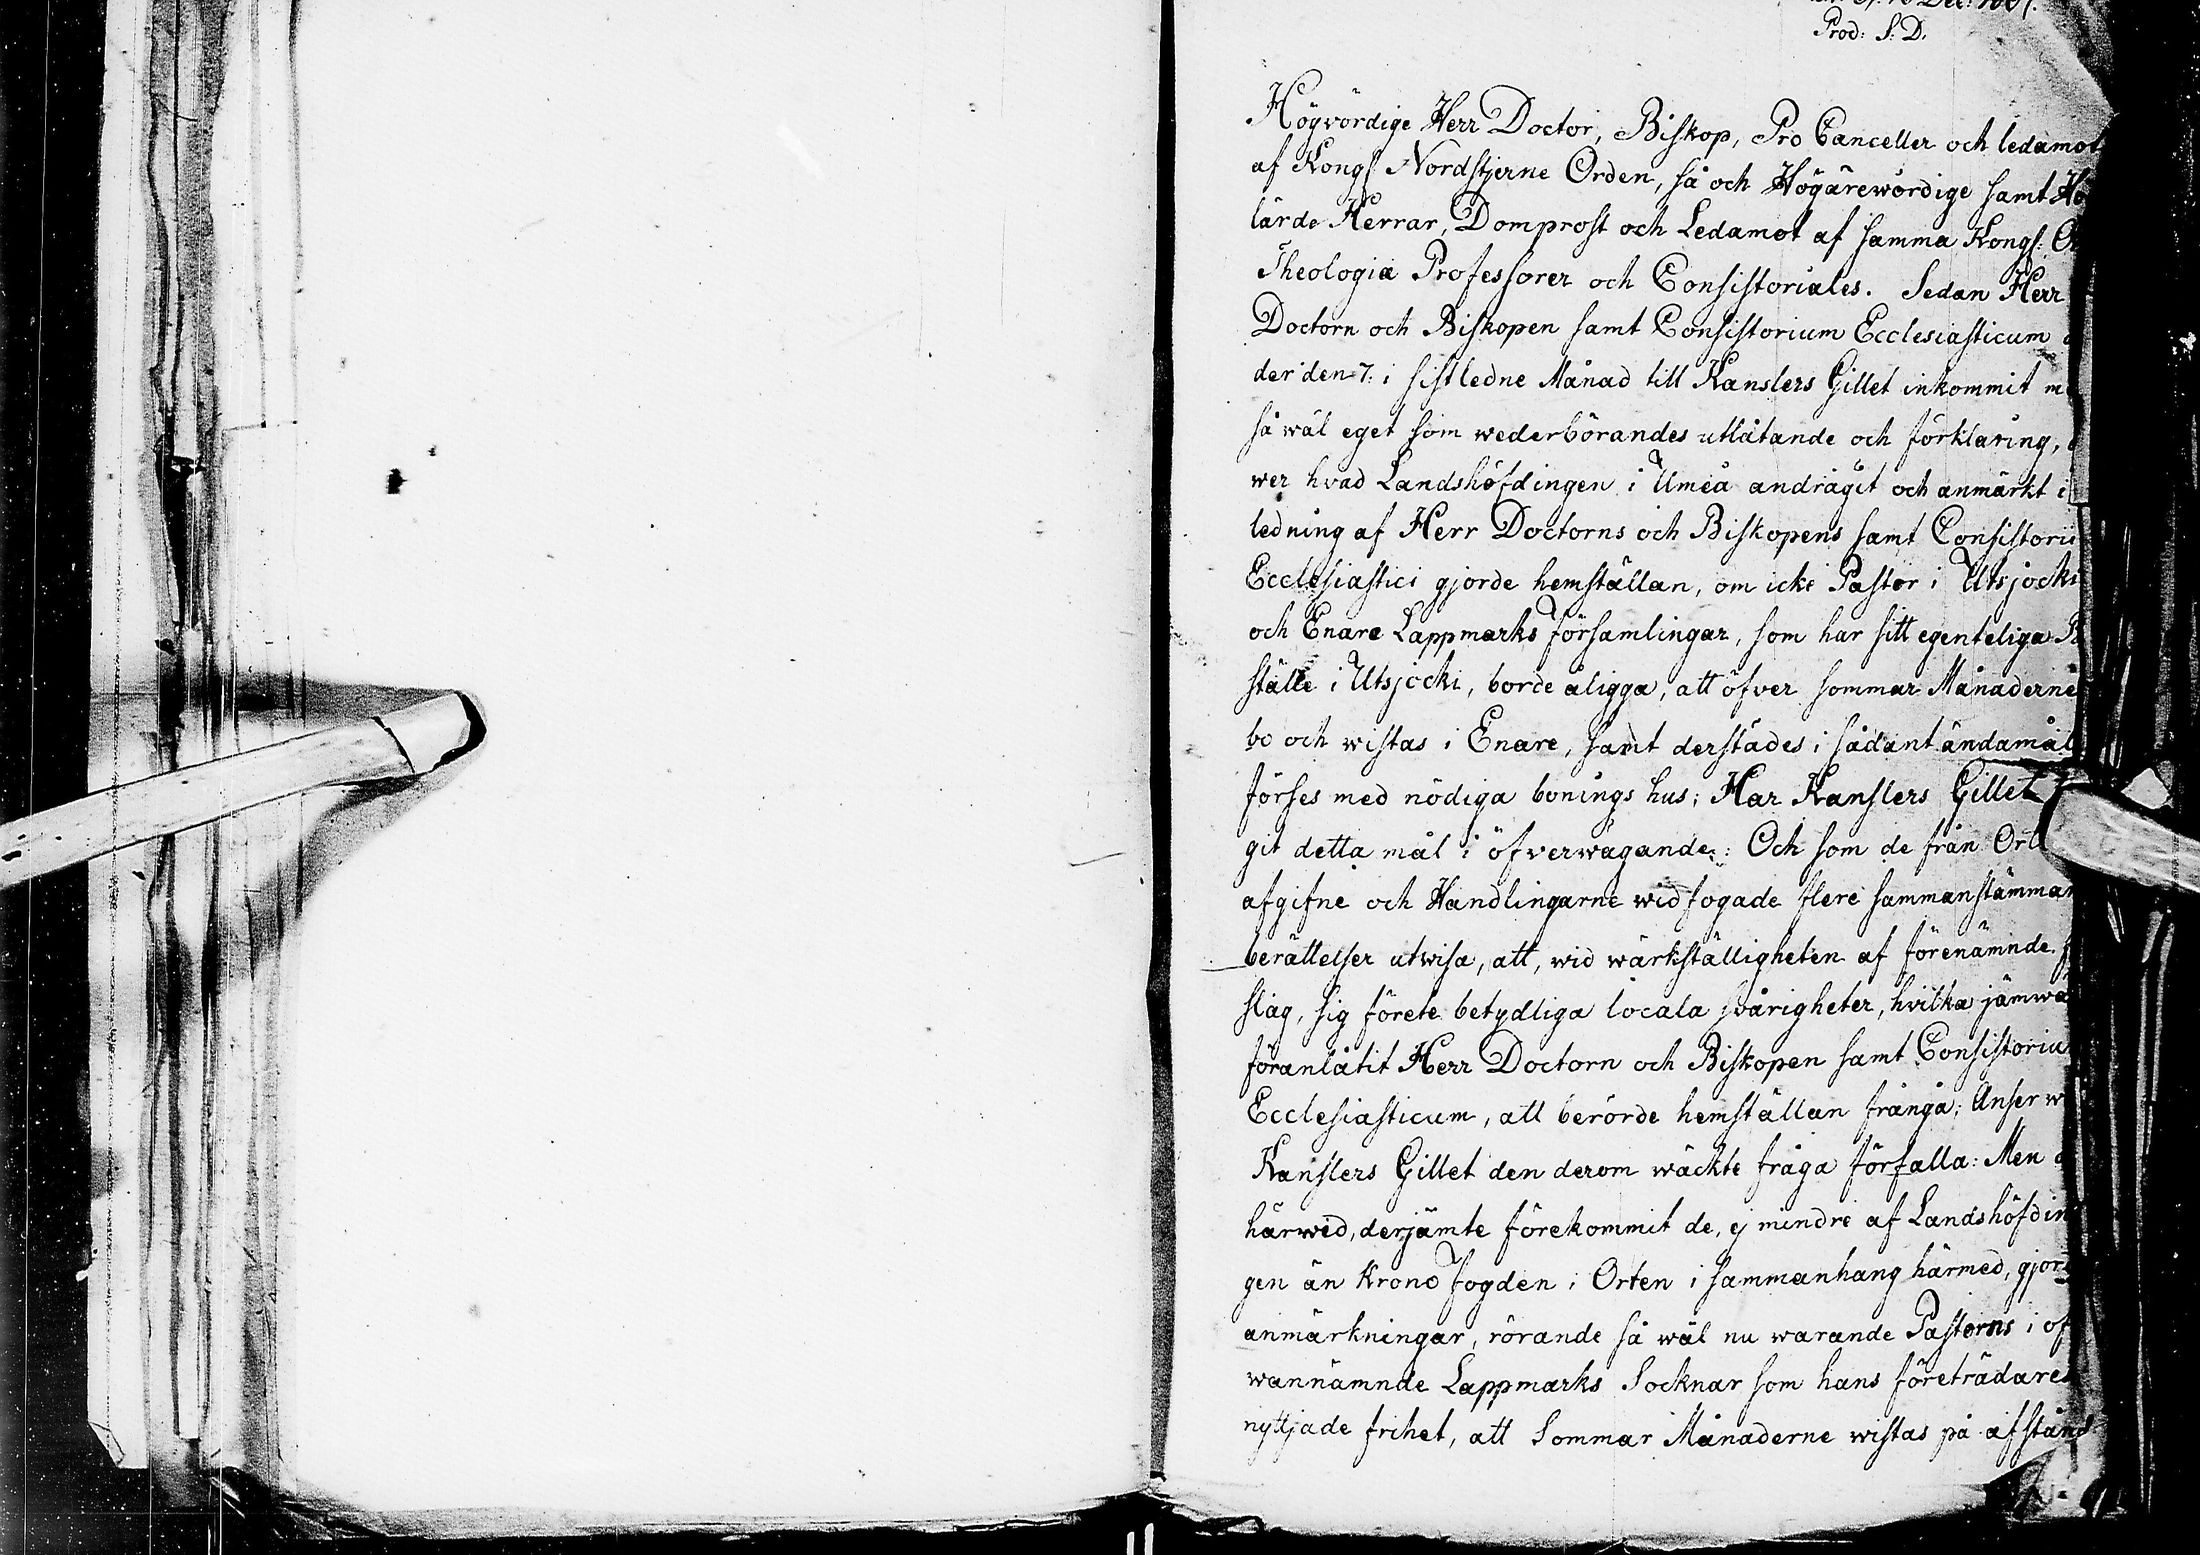 Dec: 180
Prod: S: D.
Högvördige Herr Doctor, Biskop, Pro Canceller och ledamot
af Kongl Nordstjerne Orden, så och Högärewördige samt Hö
lärde Herrar, Domprost och Ledamot af samma Kongl: O
Theologiæ Professorer och Consistoriales. Sedan Herr
Doctorn och Biskopen samt Consistorium Ecclesiasticum
der den 7: i sistledne Månad till Kanslers Gillet inkommit m
så wäl eget som wederbörandes utlåtande och förklaring,
wer hvad Landshöfdingen i Umeå andragit och anmärkt i
ledning af Herr Doctorns och Biskopens samt Consistorii
Ecclesiastici gjorde hemställan, om icke Pastor i Utsjocki
och Enare Lappmarks Församlingar, som har sitt egenteliga
ställe i Utsjocki, borde åligga, att öfver sommar Månaderne
bo och wistas i Enare, samt derstädes i sådant ändamål
förses med nödiga bonings hus; Har Kanslers Gillet
git detta mål i öfverwägande: Och som de från Ort
afgifne och Handlingarne widfogade flere sammanstämman
berättelser utwisa, att, wid wärkställigheten af förenämnde
slag, sig förete betydliga locala svårigheter, hvilka jämwä
föranlåtit Herr Doctorn och Biskopen samt Consistoriu
Ecclesiasticum, att berörde hemställan frångå; Anser w
Kanslers Gillet den derom wäckte fråga förfalla: Men
härwid, derjämte förekommit de, ej mindre af Landshöfdin
gen än Krono Fogden i Orten i sammanhang härmed, gjord
anmärkningar, rörande så wäl nu warande Pastorns i of
wannämnde Lappmarks Socknar som hans företrädares
nyttjade frihet, att Sommar Månaderne wistas på afstånd